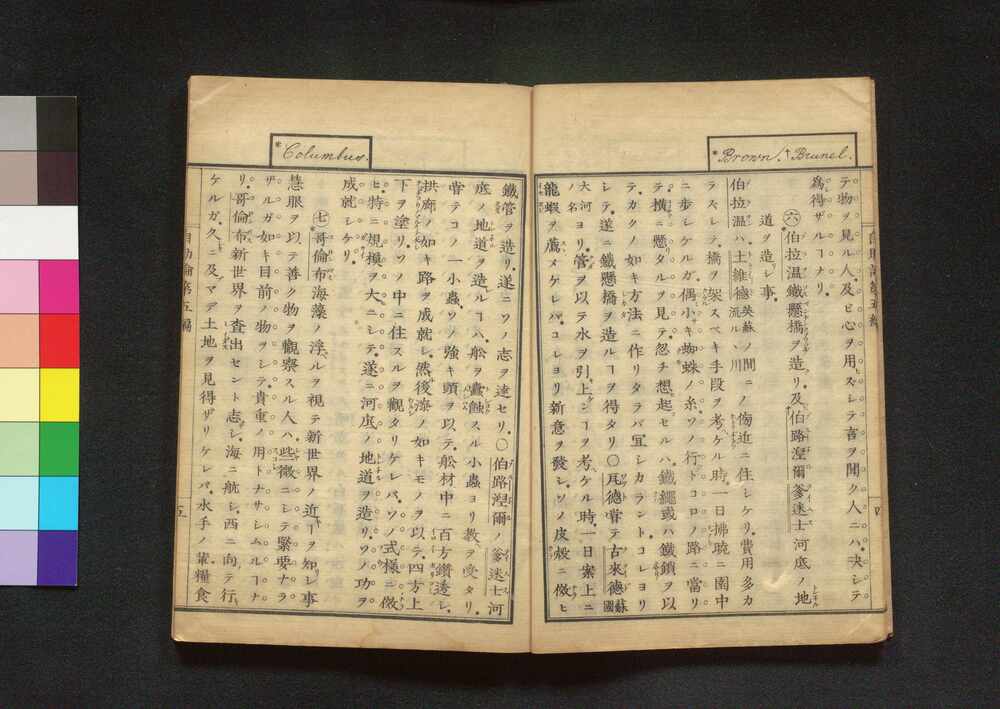 *Brown. †Brunel.
テ物ヲ見ル人及ビ心ヲ用ズシテ言ヲ聞ク人ニハ決シテ
爲得ザルヿナリ
㊅伯拉温鐵懸橋ヲ造リ及伯路涅爾爹迷士河底ノ地
道ヲ造シ事
伯拉温ハ土維德英蘇ノ間ニ流ルヽ川ノ傷近ニ住シケリ費用多カ
ラズシテ橋ヲ架スベキ手段ヲ考ケル時一日拂晩ニ園中
ニ歩シケルガ偶小キ蜘蛛ノ糸ソノ行トコロノ路ニ當リ
テ横ニ懸タルヲ見テ忽チ想起セルハ鐵繩或ハ鐵鎖ヲ以
テカクノ如キ方法ニ作リタラバ宜シカラントコレヨリ
シテ遂ニ鐵懸橋ヲ造ルヿヲ得タリ○瓦德嘗テ古來德蘇國
大河ノ名ヨリ管ヲ以テ水ヲ引上ンヿヲ考ケル時一日案上ニ
龍蝦ヲ薦メケレバコレヨリ新意ヲ發シソノ皮殼ニ倣ヒ
*Columbus.
鐵管ヲ造リ遂ニソノ志ヲ達セリ○伯路涅爾ノ爹迷士河
底ノ地道ヲ造ルヿハ舩ヲ蠧蝕スル小蟲ヨリ教ヲ受タリ
嘗テコノ一小蟲ソノ強キ頭ヲ以テ舩材中ニ百方鑽透シ
拱廊ノ如キ路ヲ成就シ然後漆ノ如キモノヲ以テ四方上
下ヲ塗リソノ中ニ住スルヲ觀タリケレバソノ式樣ニ倣
ヒ特ニ規摸ヲ大ニシテ遂ニ河底ノ地道ヲ造リソノ功ヲ
成就シケリ
七哥倫布海藻ノ浮ベルヲ視テ新世界ノ近ヿヲ知シ事
慧眼ヲ以テ善ク物ヲ觀察スル人ハ些微ニシテ緊要ナラ
ザルガ如キ目前ノ物ヲシテ貴重ノ用トナサシムルヿナ
リ哥倫布新世界ヲ査出セント志シ海ニ航シ西ニ向テ行
ケルガ久ニ及マデ土地ヲ見得ザリケレバ水手ノ輩糧食
自助論第五編
五